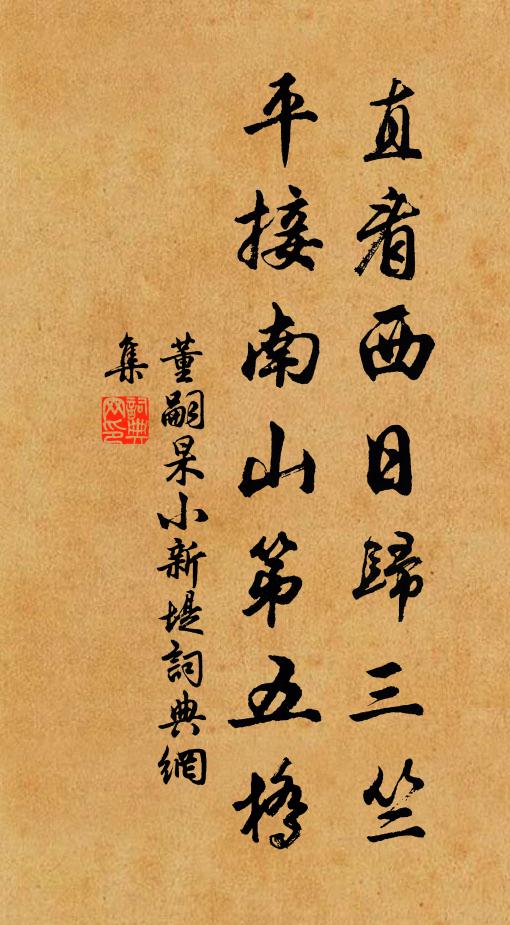 直看西日歸三竺
平接南山第五橋
董嗣杲小新堤詞典網
集
詞典
網印